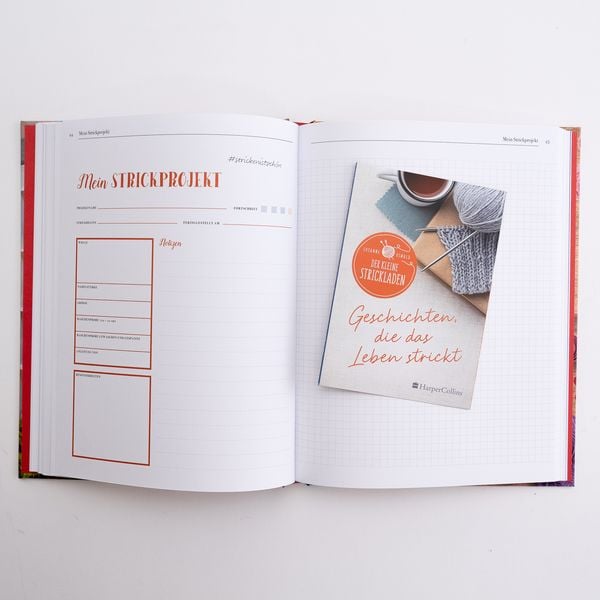 64 Mein Strickprojekt
#strickenistschön
Mein STRICKPROJEKT
PROJEKTNAME
FORTSCHRITT
FERTIGGESTELLT AM
Notizen
WOLLE
NADELSTÄRKE
GRÖSSE
Mein Strickprojekt 65
SUSANNE OSWALD
DER KLEINE
STRICKLADEN
Geschichten,
die das
Leben strickt
HarperCollins